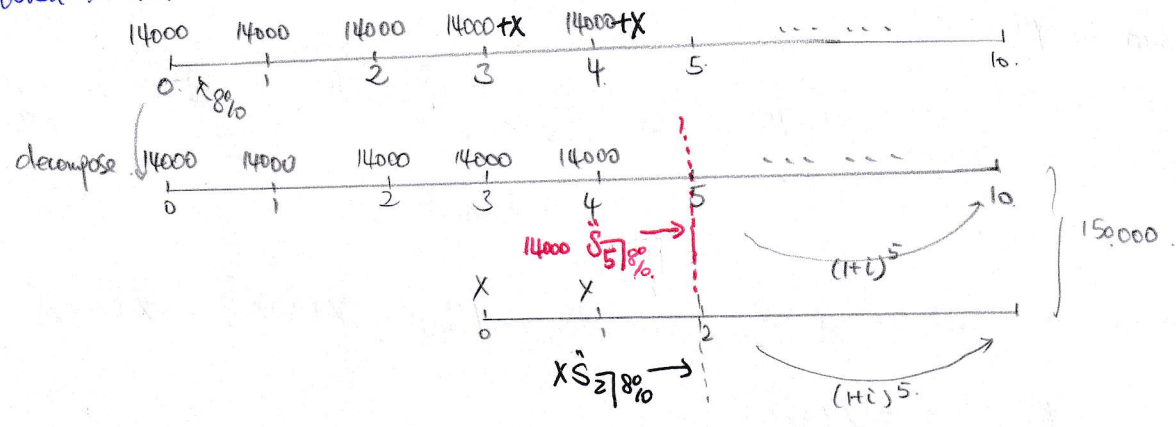 14000 14000 14000 14000+X 14000+X ... ...
0 1 2 3 4 5. 10.
8%
decompose 14000 14000 14000 14000 14000 ... ...
0 1 2 3 4 5 10.
14000 S̈5̅|8%. (1+i)^5 150,000
X X
0 1 2
X S̈2̅|8% (1+i)^5.